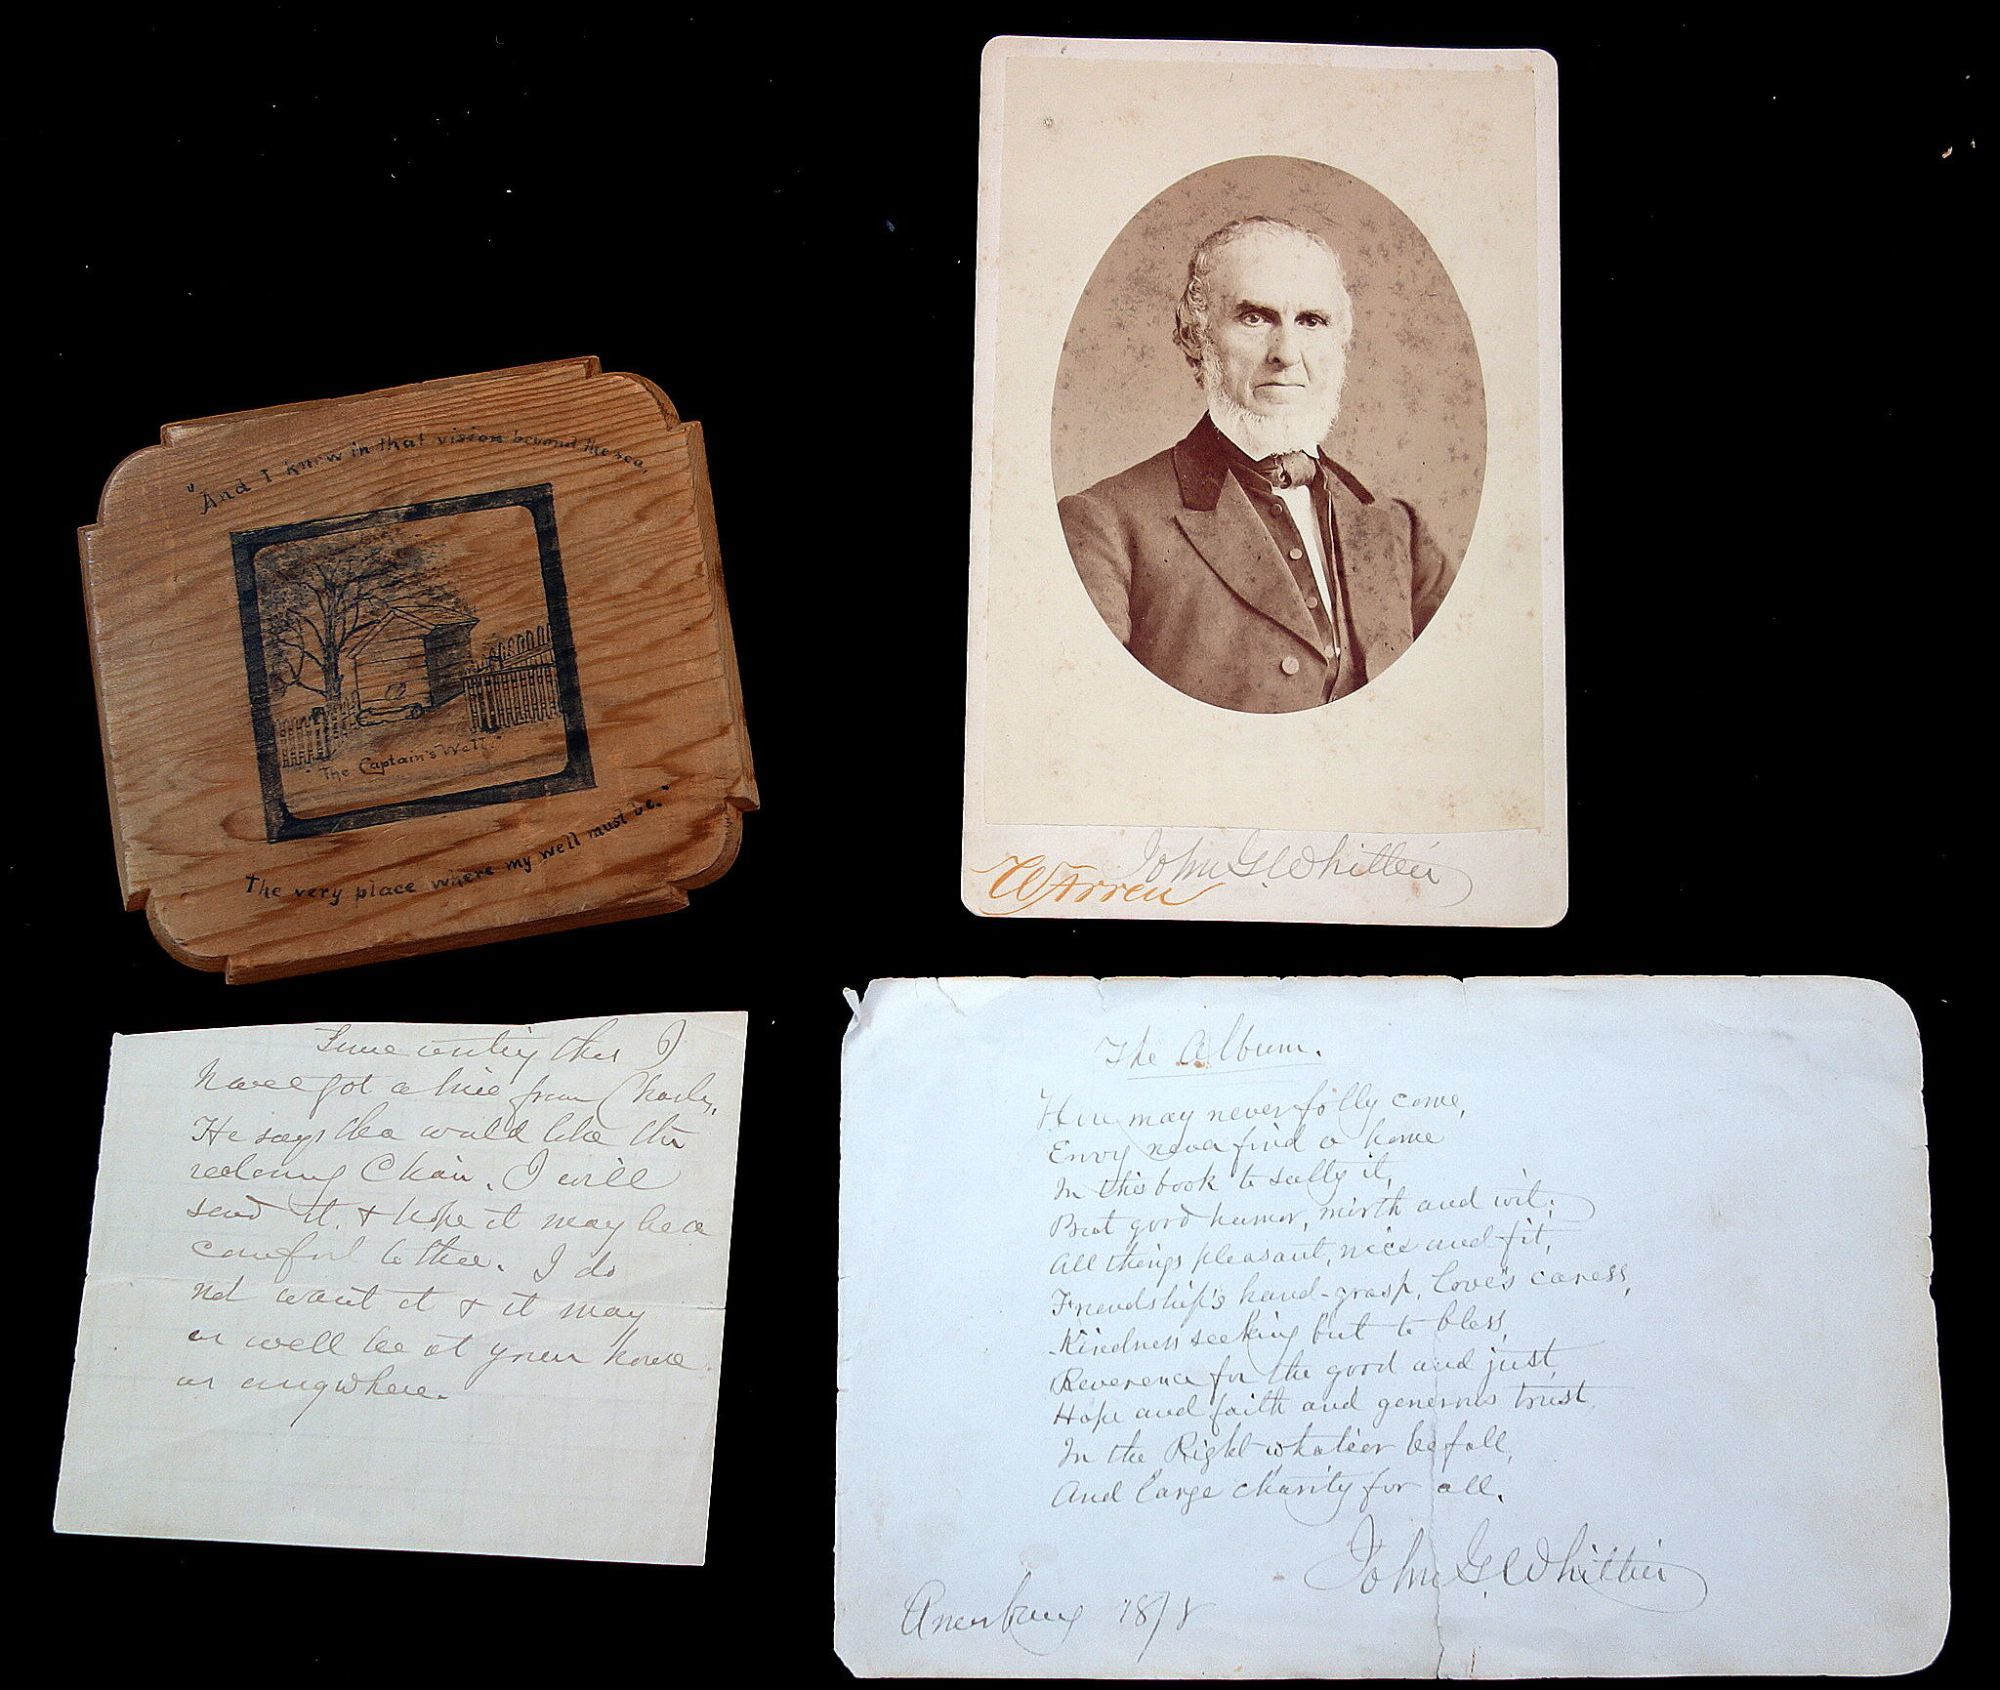 "And I knew in that vision beyond the sea,
"The Captain's Well."
The very place where my well must be."
John G. Whittier
Warren
Since writing this I
have got a line from Charles.
He says thee would like the
reclining Chair. I will
send it, & hope it may be a
comfort to thee. I do
not want it & it may
as well be at your house
as anywhere.
The Album.
Here may never folly come,
Envy never find a home
In this book to sully it,
But good humor, mirth and wit;
All things pleasant, nice and fit,
Friendship's hand-grasp, Love's caress,
Kindness seeking but to bless,
Reverence for the good and just,
Hope and faith and generous trust
In the Right whate'er befall,
And large charity for all.
John G. Whittier
Amesbury 1878